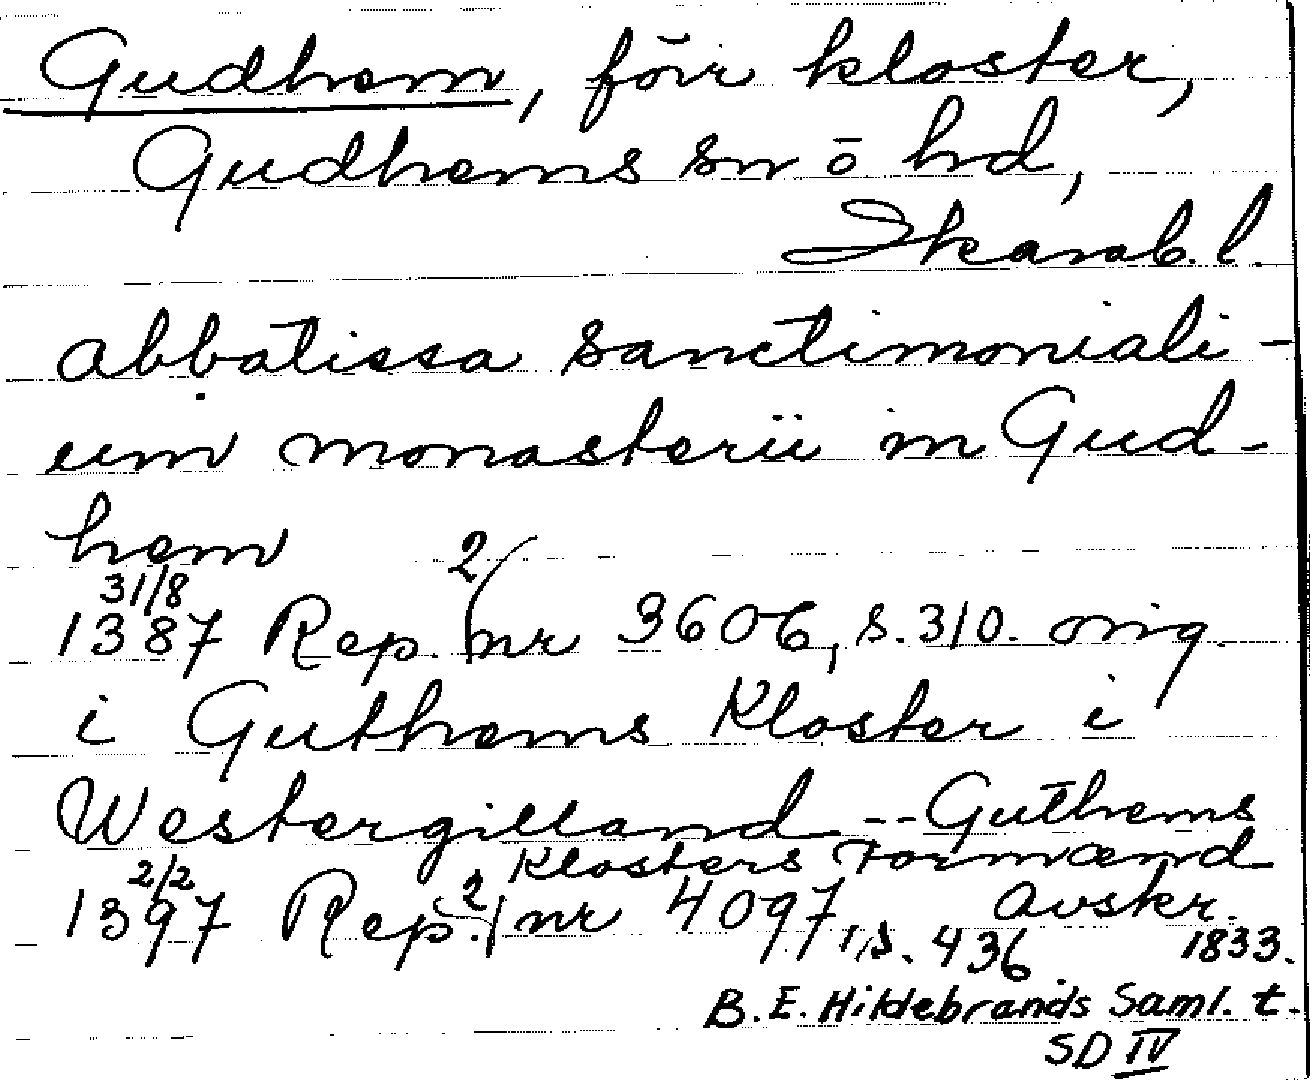 Gudhem, förr kloster,
Gudhems sn o hd,
Skarab. l.
abbatissa sanctimoniali-
um monasterii in Gud-
hem
31/8
1387 Rep. 2 nr 3606, s. 310. orig.
i Guthems Kloster i
Westergilland -- Guthems
Klosters Formænd
2/2
1397 Rep. 2 nr 4097, s. 436. Avskr. 1833.
B. E. Hildebrands Saml. t.
SD IV